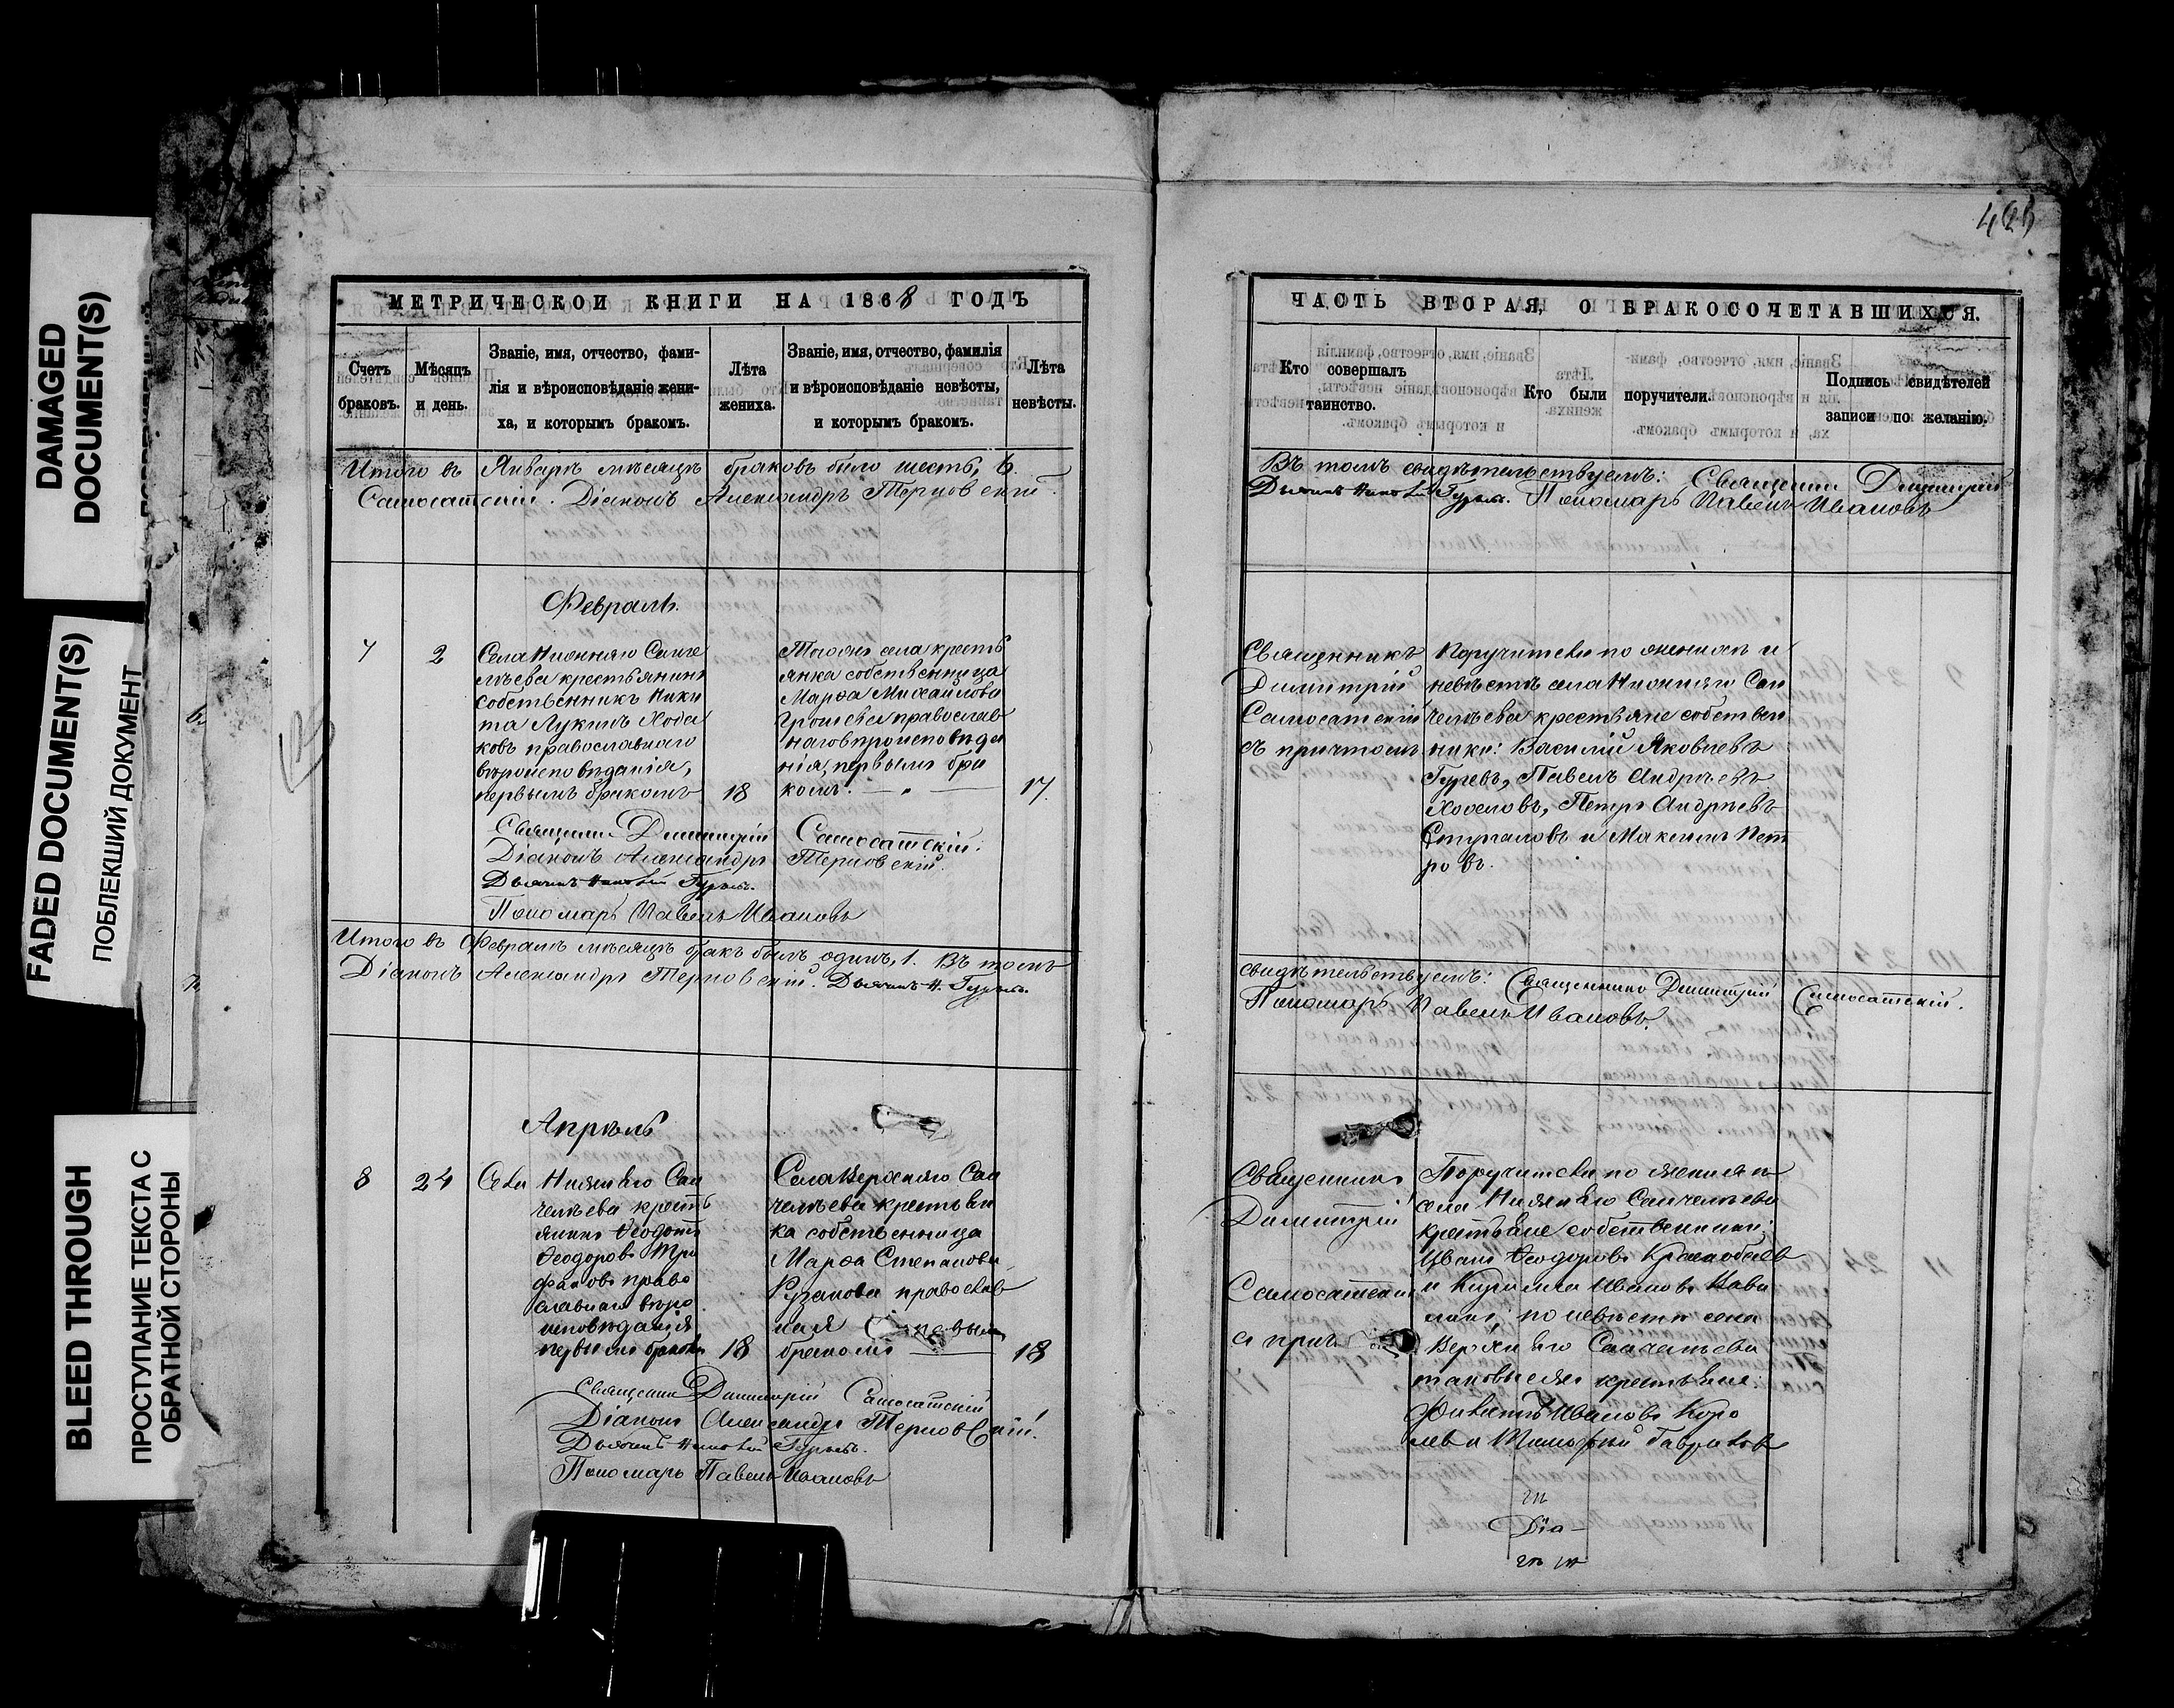 DAMAGED
DOCUMENT(S)
FADED DOCUMENT(S)
ПОБЛЕКШИЙ ДОКУМЕНТ
BLEED THROUGH
ПРОСТУПАНИЕ ТЕКСТА С
ОБРАТНОЙ СТОРОНЫ
МЕТРИЧЕСКОЙ КНИГИ НА 1868 ГОДЪ
Счетъ браковъ.
Мѣсяцъ и день.
Званіе, имя, отчество, фами-
лія и вѣроисповѣданіе жени-
ха, и которымъ бракомъ.
Лѣта жениха.
Званіе, имя, отчество, фамилія
и вѣроисповѣданіе невѣсты,
и которымъ бракомъ.
Лѣта невѣсты.
Итого въ Январѣ мѣсяцѣ браковъ было шесть, 6.
Самосатскій. Діаконъ Александръ Терновскій.
Февраль.
7 2
Села Нижняго Санче
лѣева крестьянинъ
собственникъ Ники
та Лукинъ Хода
ковъ православнаго
вѣроисповѣданія,
первымъ бракомъ
18
Тогоже села кресть
янка собственница
Марѳа Михайлова
православ
наго вѣроисповѣда
нія, первымъ бра
комъ.
17.
Священникъ Димитрій Самосатскій.
Діаконъ Александръ Терновскій.
Дьячекъ Гурьевъ.
Пономарь Павелъ Ивановъ
Итого въ Февралѣ мѣсяцѣ бракъ былъ одинъ, 1. Въ томъ
Діаконъ Александръ Терновскій. Дьячекъ Н. Гурьевъ.
Апрѣль
8 24
Села Нижняго Сан
челѣева кресть
янинъ Ѳеодотъ
Ѳеодоровъ Три
фановъ право
славнаго вѣро
исповѣданія
первымъ бракомъ
18
Села Верхняго Сан
челѣева крестьян
ка собственница
Марѳа Степанова
православ
ная первымъ
бракомъ
18
Священникъ Димитрій Самосатскій
Діаконъ Александръ Терновскій.
Дьячекъ Гурьевъ.
Пономарь Павелъ Ивановъ
ЧАСТЬ ВТОРАЯ, О БРАКОСОЧЕТАВШИХСЯ.
Кто совершалъ
таинство.
Кто были поручители.
Подпись свидѣтелей
записи по желанію.
Въ томъ свидѣтельствуемъ: Священникъ Димитрій
Дьячекъ Гурьевъ. Пономарь Павелъ Ивановъ
Священникъ
Димитрій
Самосатскій
съ причтомъ
Поручители по женихѣ и
невѣстѣ села Нижняго Сан
челѣева крестьяне собствен
ники: Василій Яковлевъ
Гуревъ, Павелъ Андреевъ
Петръ Андреевъ
и Максимъ Пет
ровъ.
свидѣтельствуемъ: Священникъ Димитрій Самосатскій.
Пономарь Павелъ Ивановъ.
Священникъ
Димитрій
Самосатскій
съ прич
Поручители по женихѣ
села Нижняго Санчелѣева
крестьяне собственники:
Иванъ Ѳеодоровъ
и Кирилла Ивановъ
по невѣстѣ села
Верхняго Санчелѣева
таковые же крестьяне:
Ивановъ Коро
левъ и Тимофей Гавриловъ
Діа-